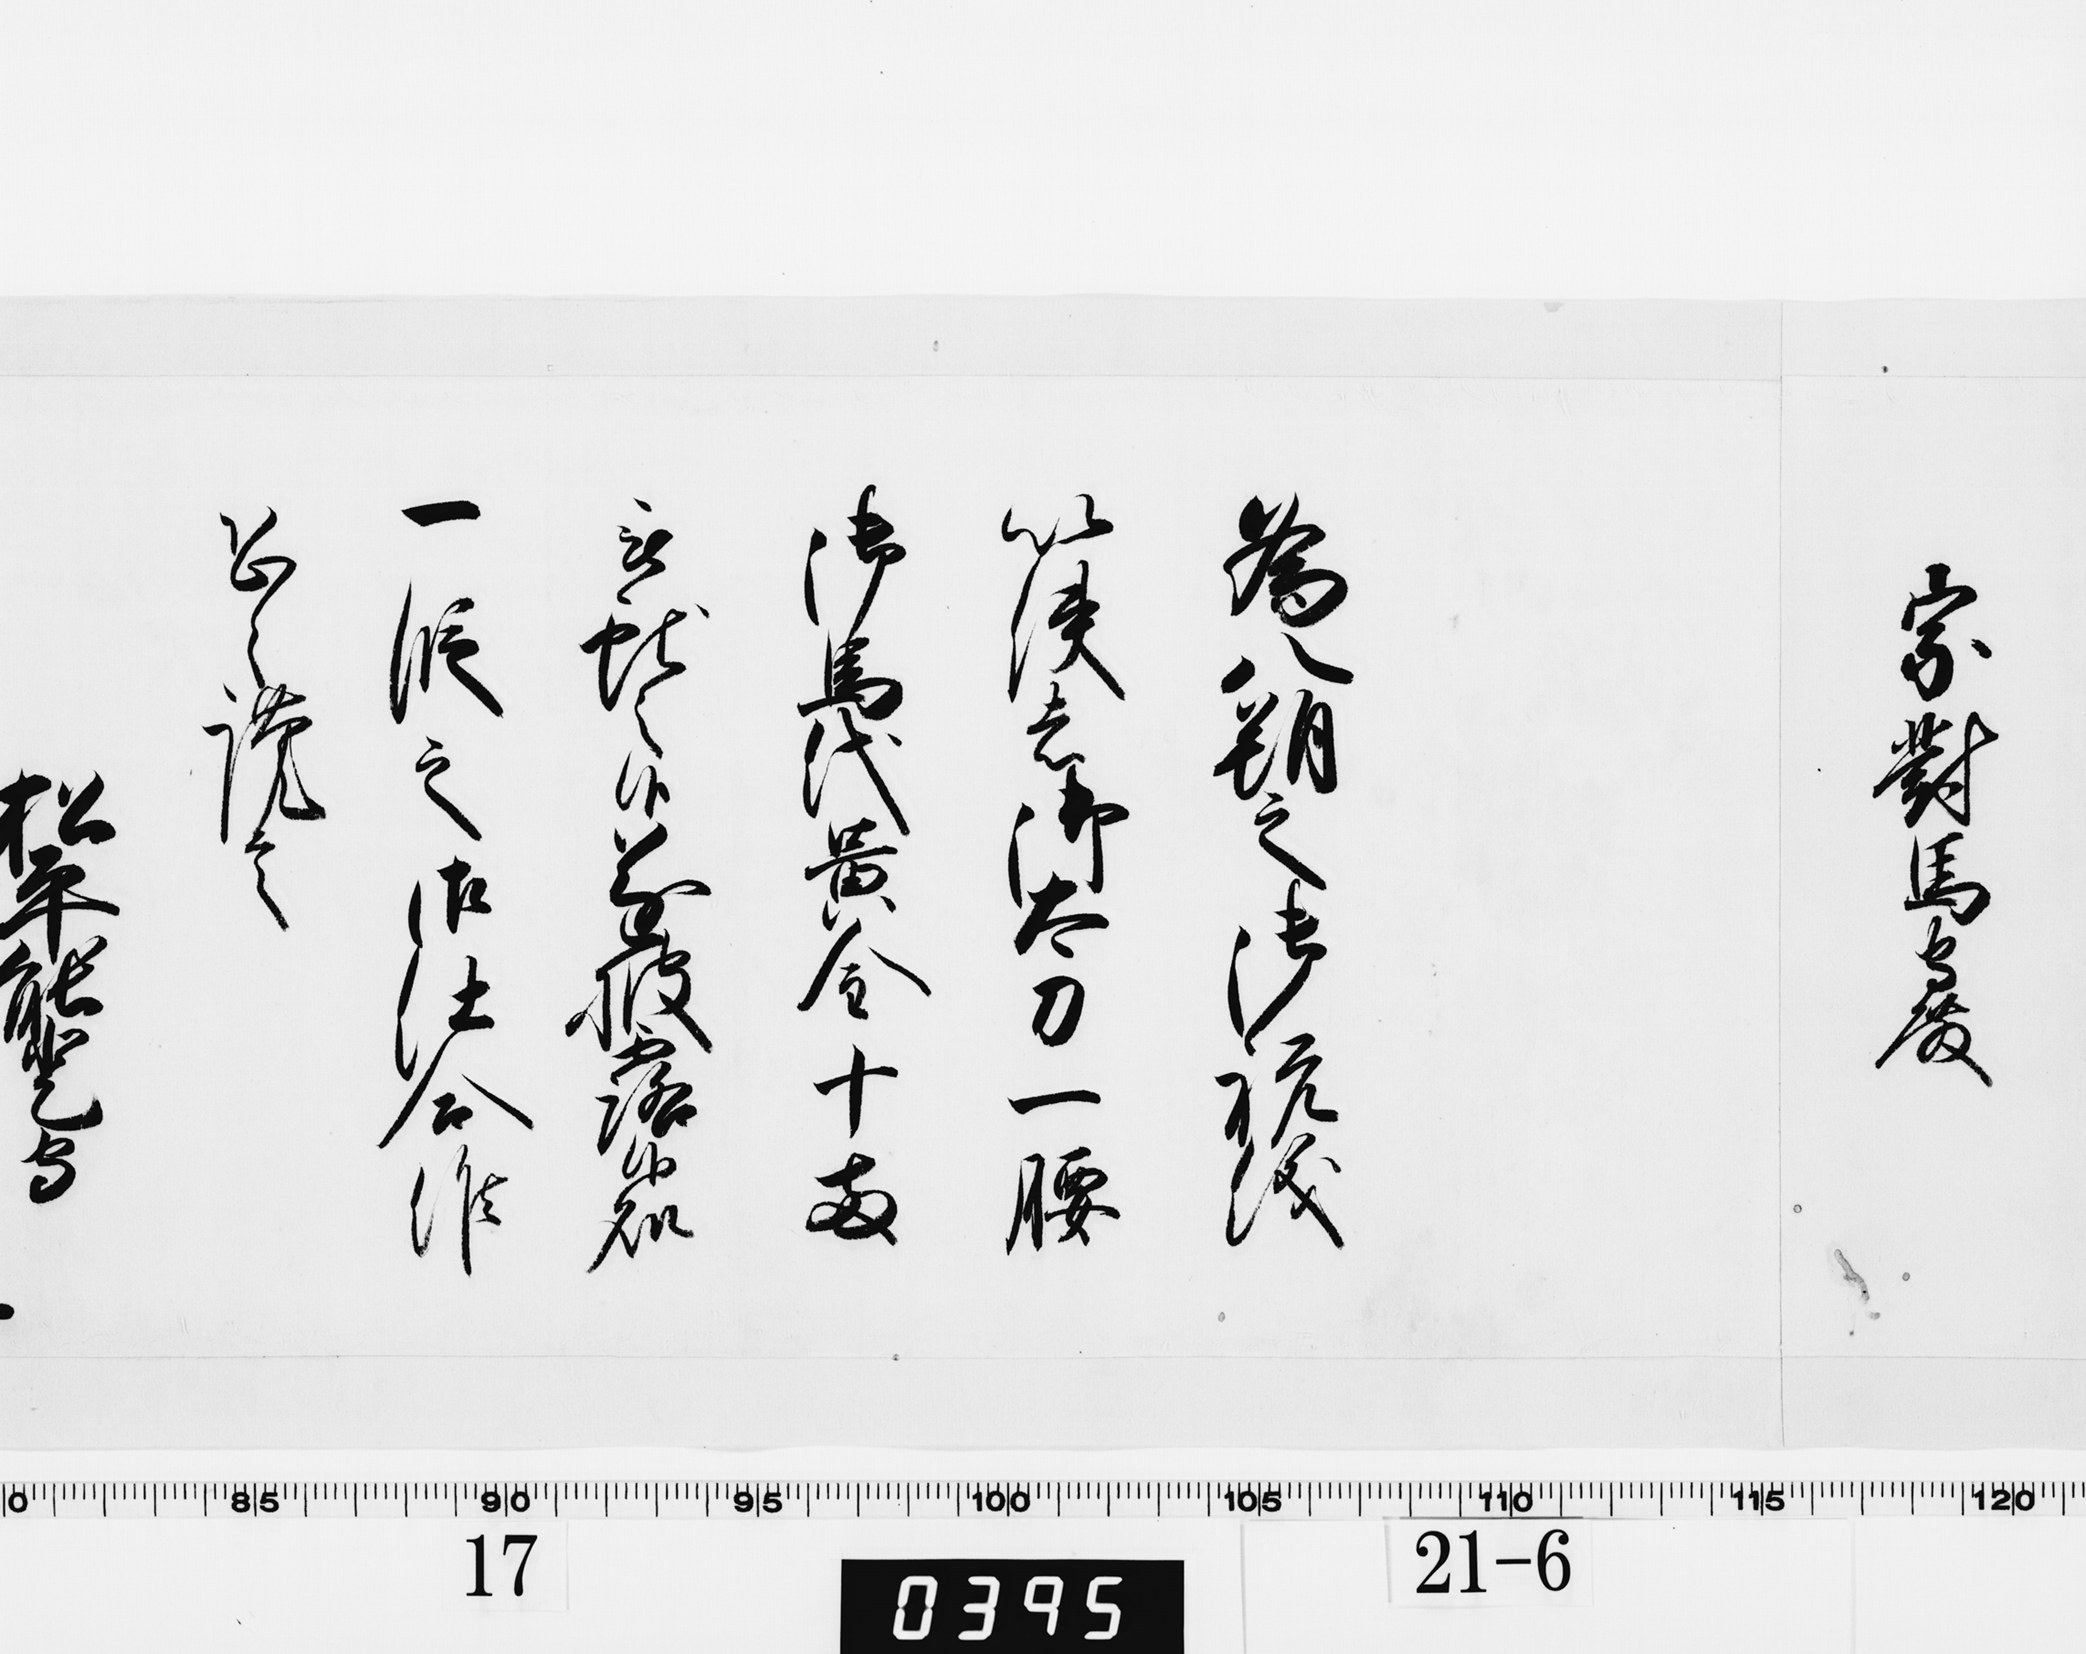 宗對馬守殿
為八朔之御祝儀
以使者御太刀一腰
御馬代黄金十両
被献之候遂披露候処
一段之御仕合候
恐々謹言
松平能登守
0 85 90 95 100 105 110 115 120
17
0395
21-6